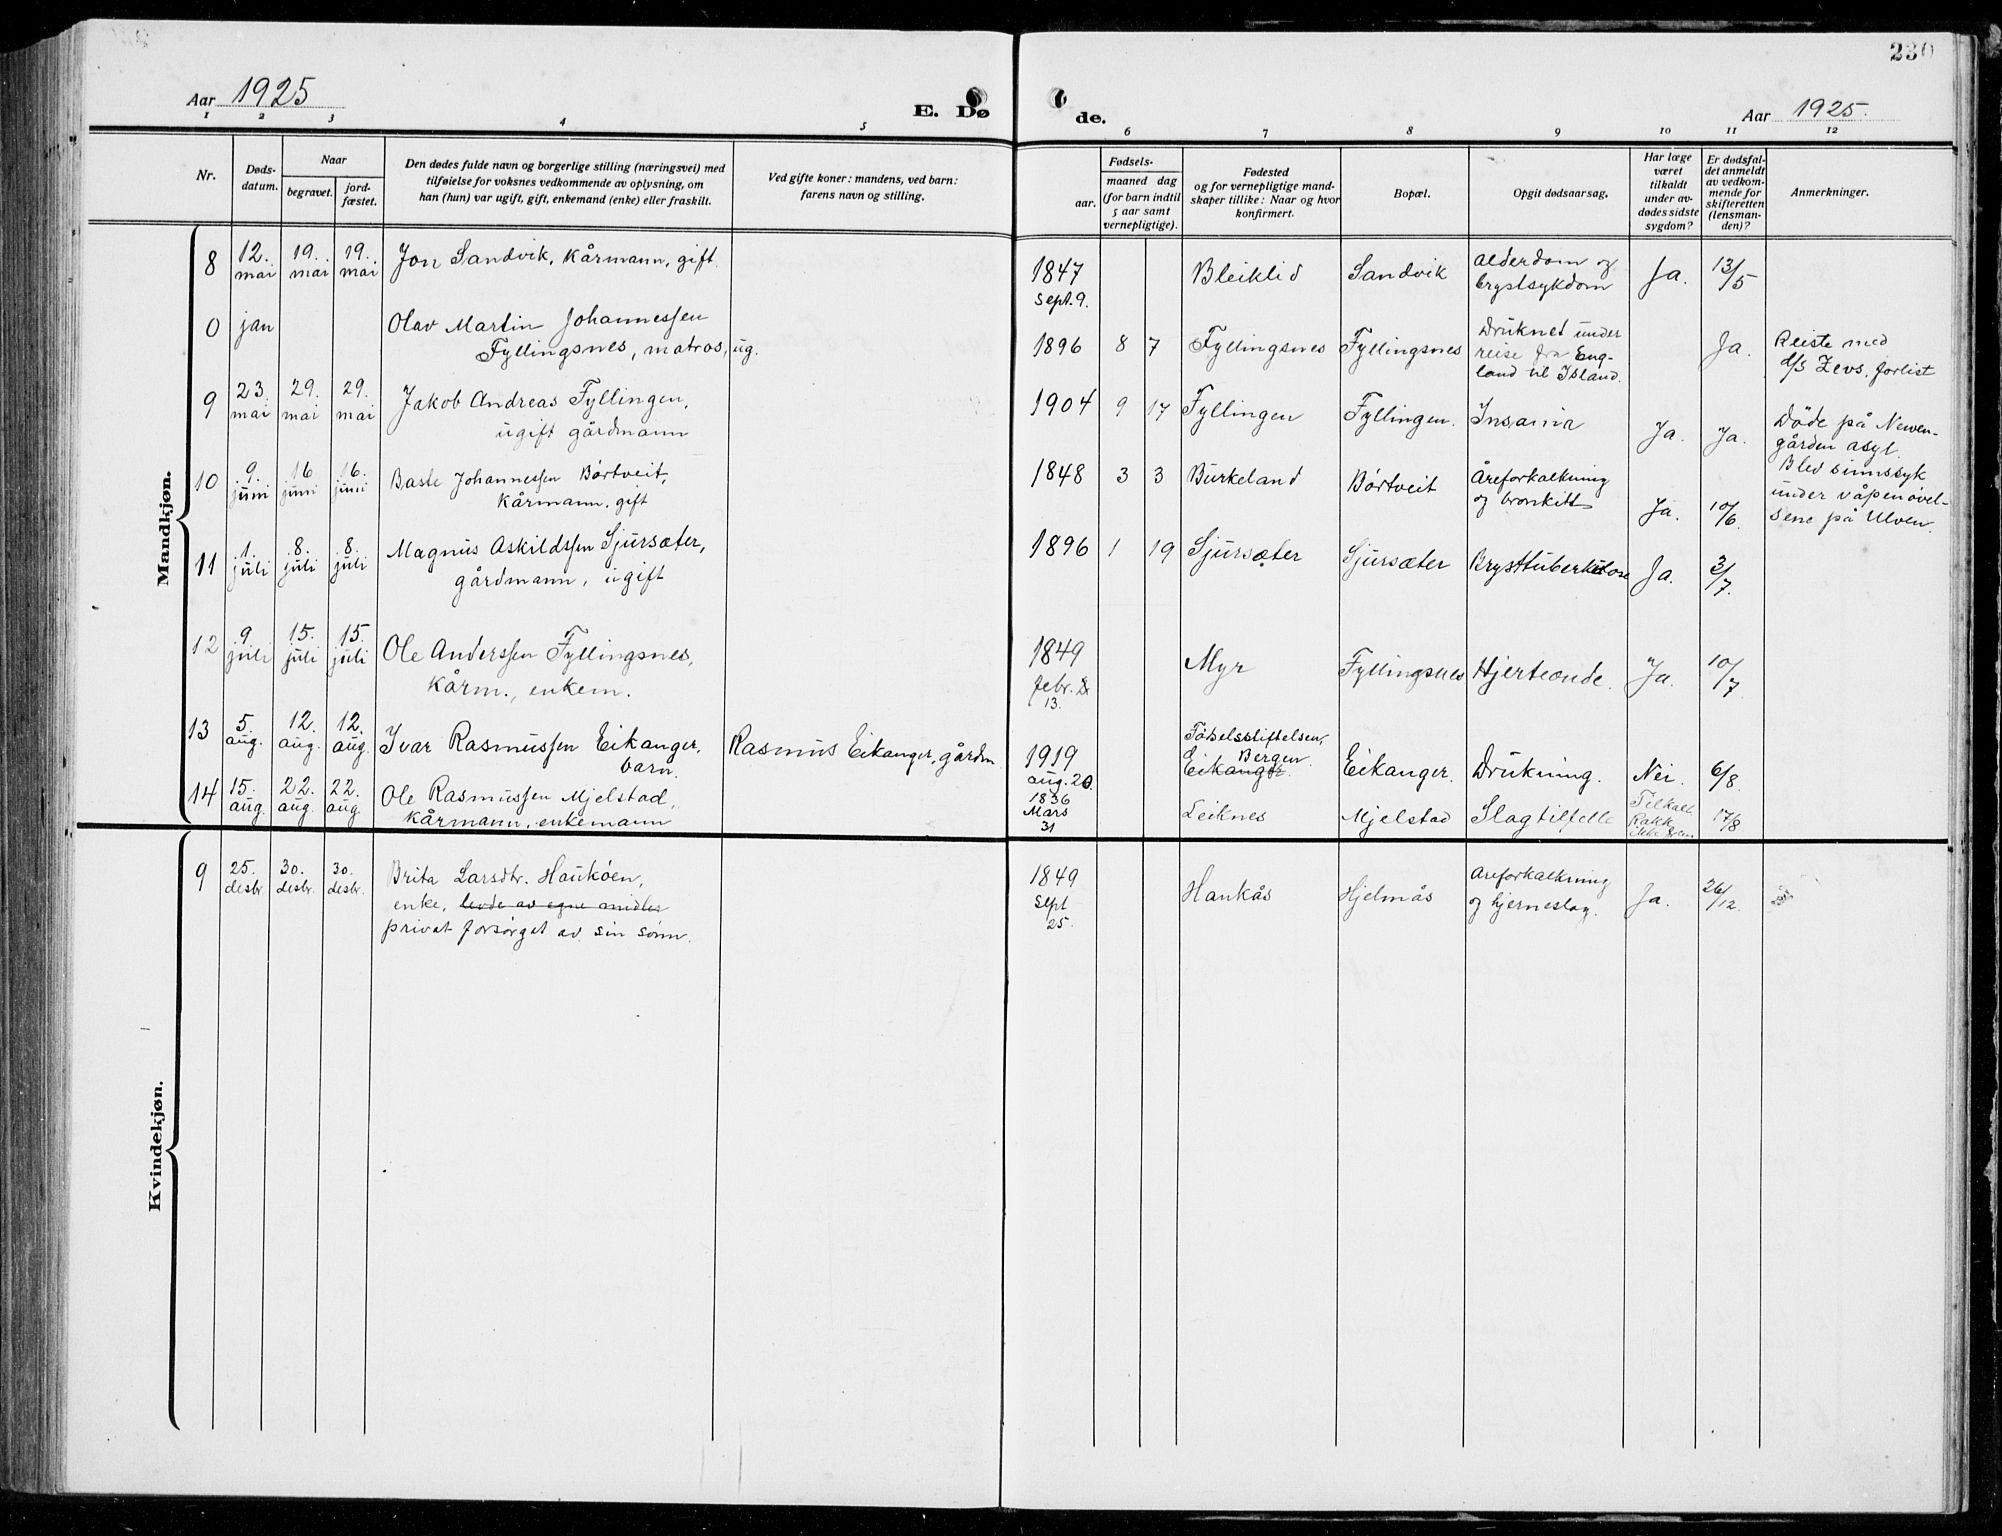 230
Aar 1925
E. Dø
de.
Aar 1925.
1 2 3 4 5 6 7 8 9 10 11 12
Nr.
Døds-
datum.
Naar
begravet.
jord-
fæstet.
Den dødes fulde navn og borgerlige stilling (næringsvei) med
tilføielse for voksnes vedkommende av oplysning, om
han (hun) var ugift, gift, enkemand (enke) eller fraskilt.
Ved gifte koner: mandens, ved barn:
farens navn og stilling.
Fødsels-
aar.
maaned dag
(for barn indtil
5 aar samt
vernepligtige).
Fødested
og for vernepligtige mand-
skaper tillike: Naar og hvor
konfirmert.
Bopæl.
Opgit dødsaarsag.
Har læge
været
tilkaldt
under av-
dødes sidste
sygdom?
Er dødsfal-
det anmeldt
av vedkom-
mende for
skifteretten
(lensman-
den)?
Anmerkninger.
Mandkjøn.
8 12. mai 19. mai 19. mai Jon Sandvik, kårmann, gift. 1847 sept. 9. Bleiklid Sandvik alderdom og
brystsykdom Ja. 13/5
0 jan Olav Martin Johannessen
Fyllingsnes, matros, ug. 1896 8 7 Fyllingsnes Fyllingsnes Druknet under
reise fra Eng-
land til Island. Ja. Reiste med
d/s Zevs, forlist
9 23. mai 29. mai 29. mai Jakob Andreas Fyllingen,
ugift gårdmann 1904 9 17 Fyllingen Fyllingen. Insania Ja. Ja. Döde på Neven-
gården asyl.
Blev sinnssyk
under våpenøvel-
sene på Ulven.
10 9. juni 16 juni 16. juni Baste Johannessen Börtveit,
kårmann, gift 1848 3 3 Burkeland Börtveit Åreforkalkning
og bronkitt Ja. 10/6.
11 1. juli 8. juli 8. juli Magnus Askildssen Sjursæter,
gårdmann, ugift 1896 1 19 Sjursæter Sjursæter Brysttuberkulose Ja. 3/7.
12 9. juli 15. juli 15. juli Ole Anderssen Fyllingsnes,
kårm., enkem. 1849 febr. 13. Myr Fyllingsnes Hjerteonde. Ja. 10/7
13 5. aug. 12. aug. 12. aug. Ivar Rasmussen Eikanger,
barn. Rasmus Eikanger, gårdm 1919 aug. 20. Födselsstiftelsen,
Bergen
Eikanger. Eikanger. Drukning. Nei. 6/8.
14 15. aug. 22. aug. 22. aug Ole Rasmussen Mjelstad,
kårmann, enkemann 1836 Mars 31 Leiknes Mjelstad Slagtilfelle Tilkalt
Rakk
ikke frem. 17/8
Kvindekjøn.
9 25. desbr 30. desbr. 30. desbr. Brita Larsdtr. Hauköen,
enke, levde av egne midler
privat forsörget av sin sönn. 1849 sept 25. Haukås Hjelmås Areforkalkning
og hjerneslag. Ja. 26/12.